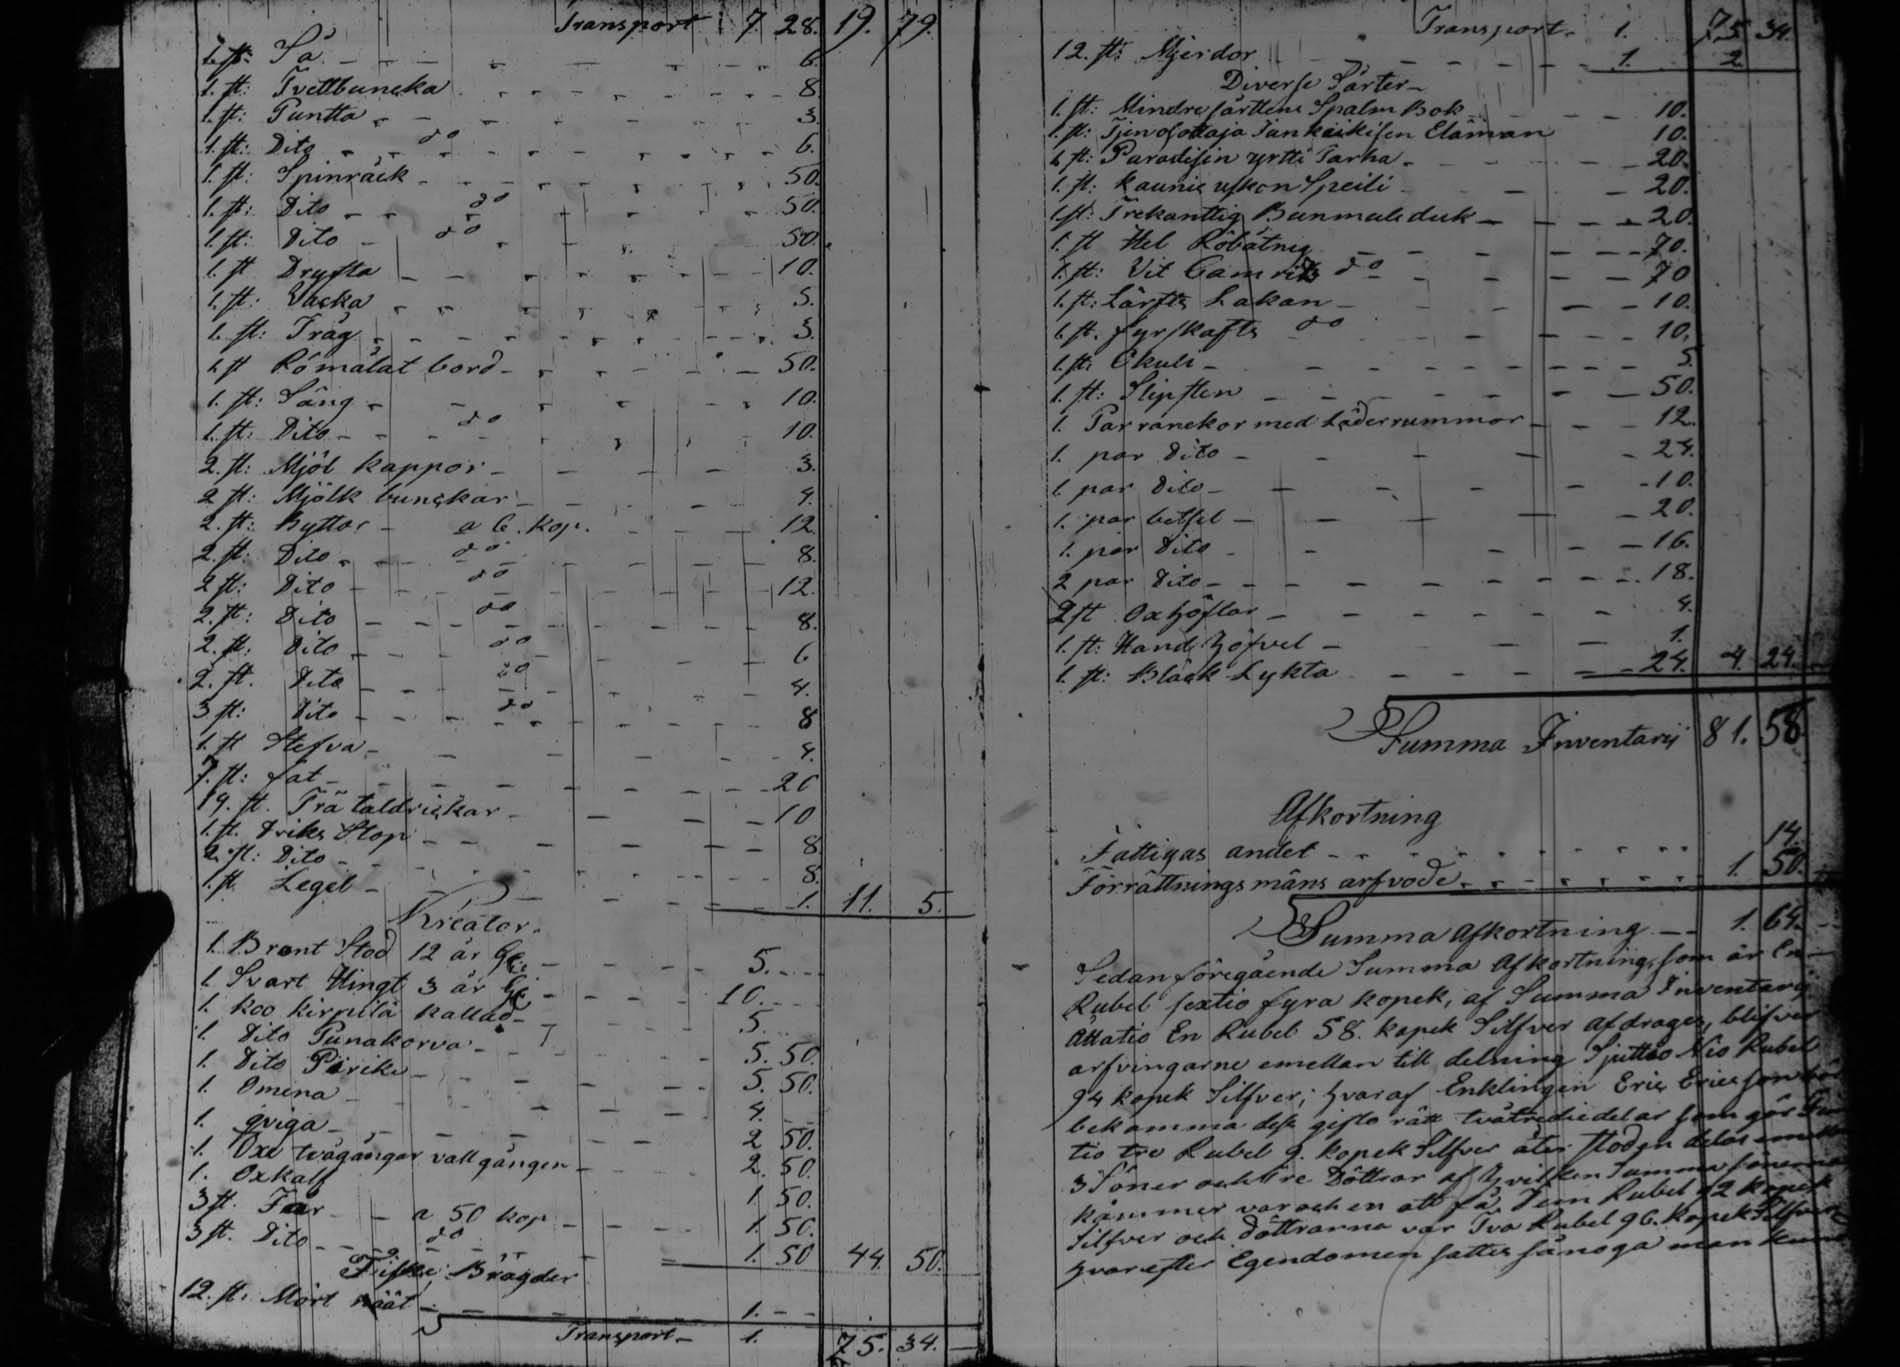 Transport 7. 28. 19. 79.
1. st: Så 6.
1. st: Tvettbuncka 8.
1. st: Puntta 3.
1. st: Dito do 6.
1. st: Spinråck 50.
1. st: Dito do 50.
1. st: Dito do 50.
1. st Dryfta 10.
1. st: Vacka 5.
1. st: Tråg 3.
1. st Römålat bord 50.
1. st: Säng 10.
1. st: Dito do 10.
2. st: Mjöl kappor 3.
2 st: Mjölk bunckar 4.
2. st: Byttor a 6. kop. 12
2. st: Dito do 8.
2 st: Dito do 12.
2. st: Dito do 8.
2. st: Dito do 6
2. st. Dito do 4.
3 st: Dito do 8
1. st Stefva 4.
7. st: fat 20
19. st. Trä taldrickar 10
1. st. Driks Stop 8
2. st: Dito 8.
1. st. Legel 1. 11. 5.
Kreatur.
1. Brunt Stod 12 år 5.
1. Svart Hingt 3 år 10.
1. Koo kirpilä kallad 5.
1. Dito Punakorva 5. 50.
1. Dito Pirike 5. 50.
1. Omena 4.
1. qviga 2 50.
1. Oxe tvågångar vallgången 2. 50.
1. Oxkalf 1 50.
3 st. Får a 50 kop 1. 50.
3 st. Dito do 1. 50 44. 50.
Fiske Brägder
12. st. Mört näät 1.
Transport 1. 75. 34.
Transport 1. 75 34.
12. st: Mjerdor 1. 2
Diverse Särter
1. st: Mindre särttens Spalm Bok 10.
1. st: Eläman 10.
1. st: Paradisin yrtti Tarha 20.
1. st: Kaunis uskon Speili 20.
1. st: Trekanttig Bunmuls duk 20.
1. st Hel 70.
1. st: Vit do 70
1. st: Lärfts Lakan 10.
1. st. fyrskafts do 10.
1. st: 5
1. st: Slipsten 50.
1. Par ranckor med Läderrummor 12.
1. par Dito 24.
1. par Dito 10.
1. par betsel 20.
1. par Dito 16.
2 par Dito 18.
2 st Oxhöflar 4.
1. st: Hand höfvel 1.
1. st: Bläck Lykta 24. 4. 24.
Summa Inventarij 81. 58
Afkortning
Fattigas andel 14.
Förrättnings mäns arfvode 1. 50.
Summa afkortning 1. 64.
Sedan föregående Summa Afkortning, som är En
Rubel sextio fyra kopek, af Summa Inventarij
Åttatio En Rubel 58. kopek Silfver afdrages, blifver
arfvingarne emellan till delning Sjuttio Nio Rubel
94 kopek Silfver; hvaraf Enklingen Eric Ericsson
bekomma dess gifto rätt tvåtrediedelar som gör
tio tre Rubel 9. kopek Silfver åter stoden delas
3 Söner och tre Döttrar af hvilken Summa sönerna
kommer var och en att få Fem Rubel 92 kopek
Silfver och döttrarna var Två Rubel 96. kopek Silfver
hvarefter Egendomen sattes sånoga man